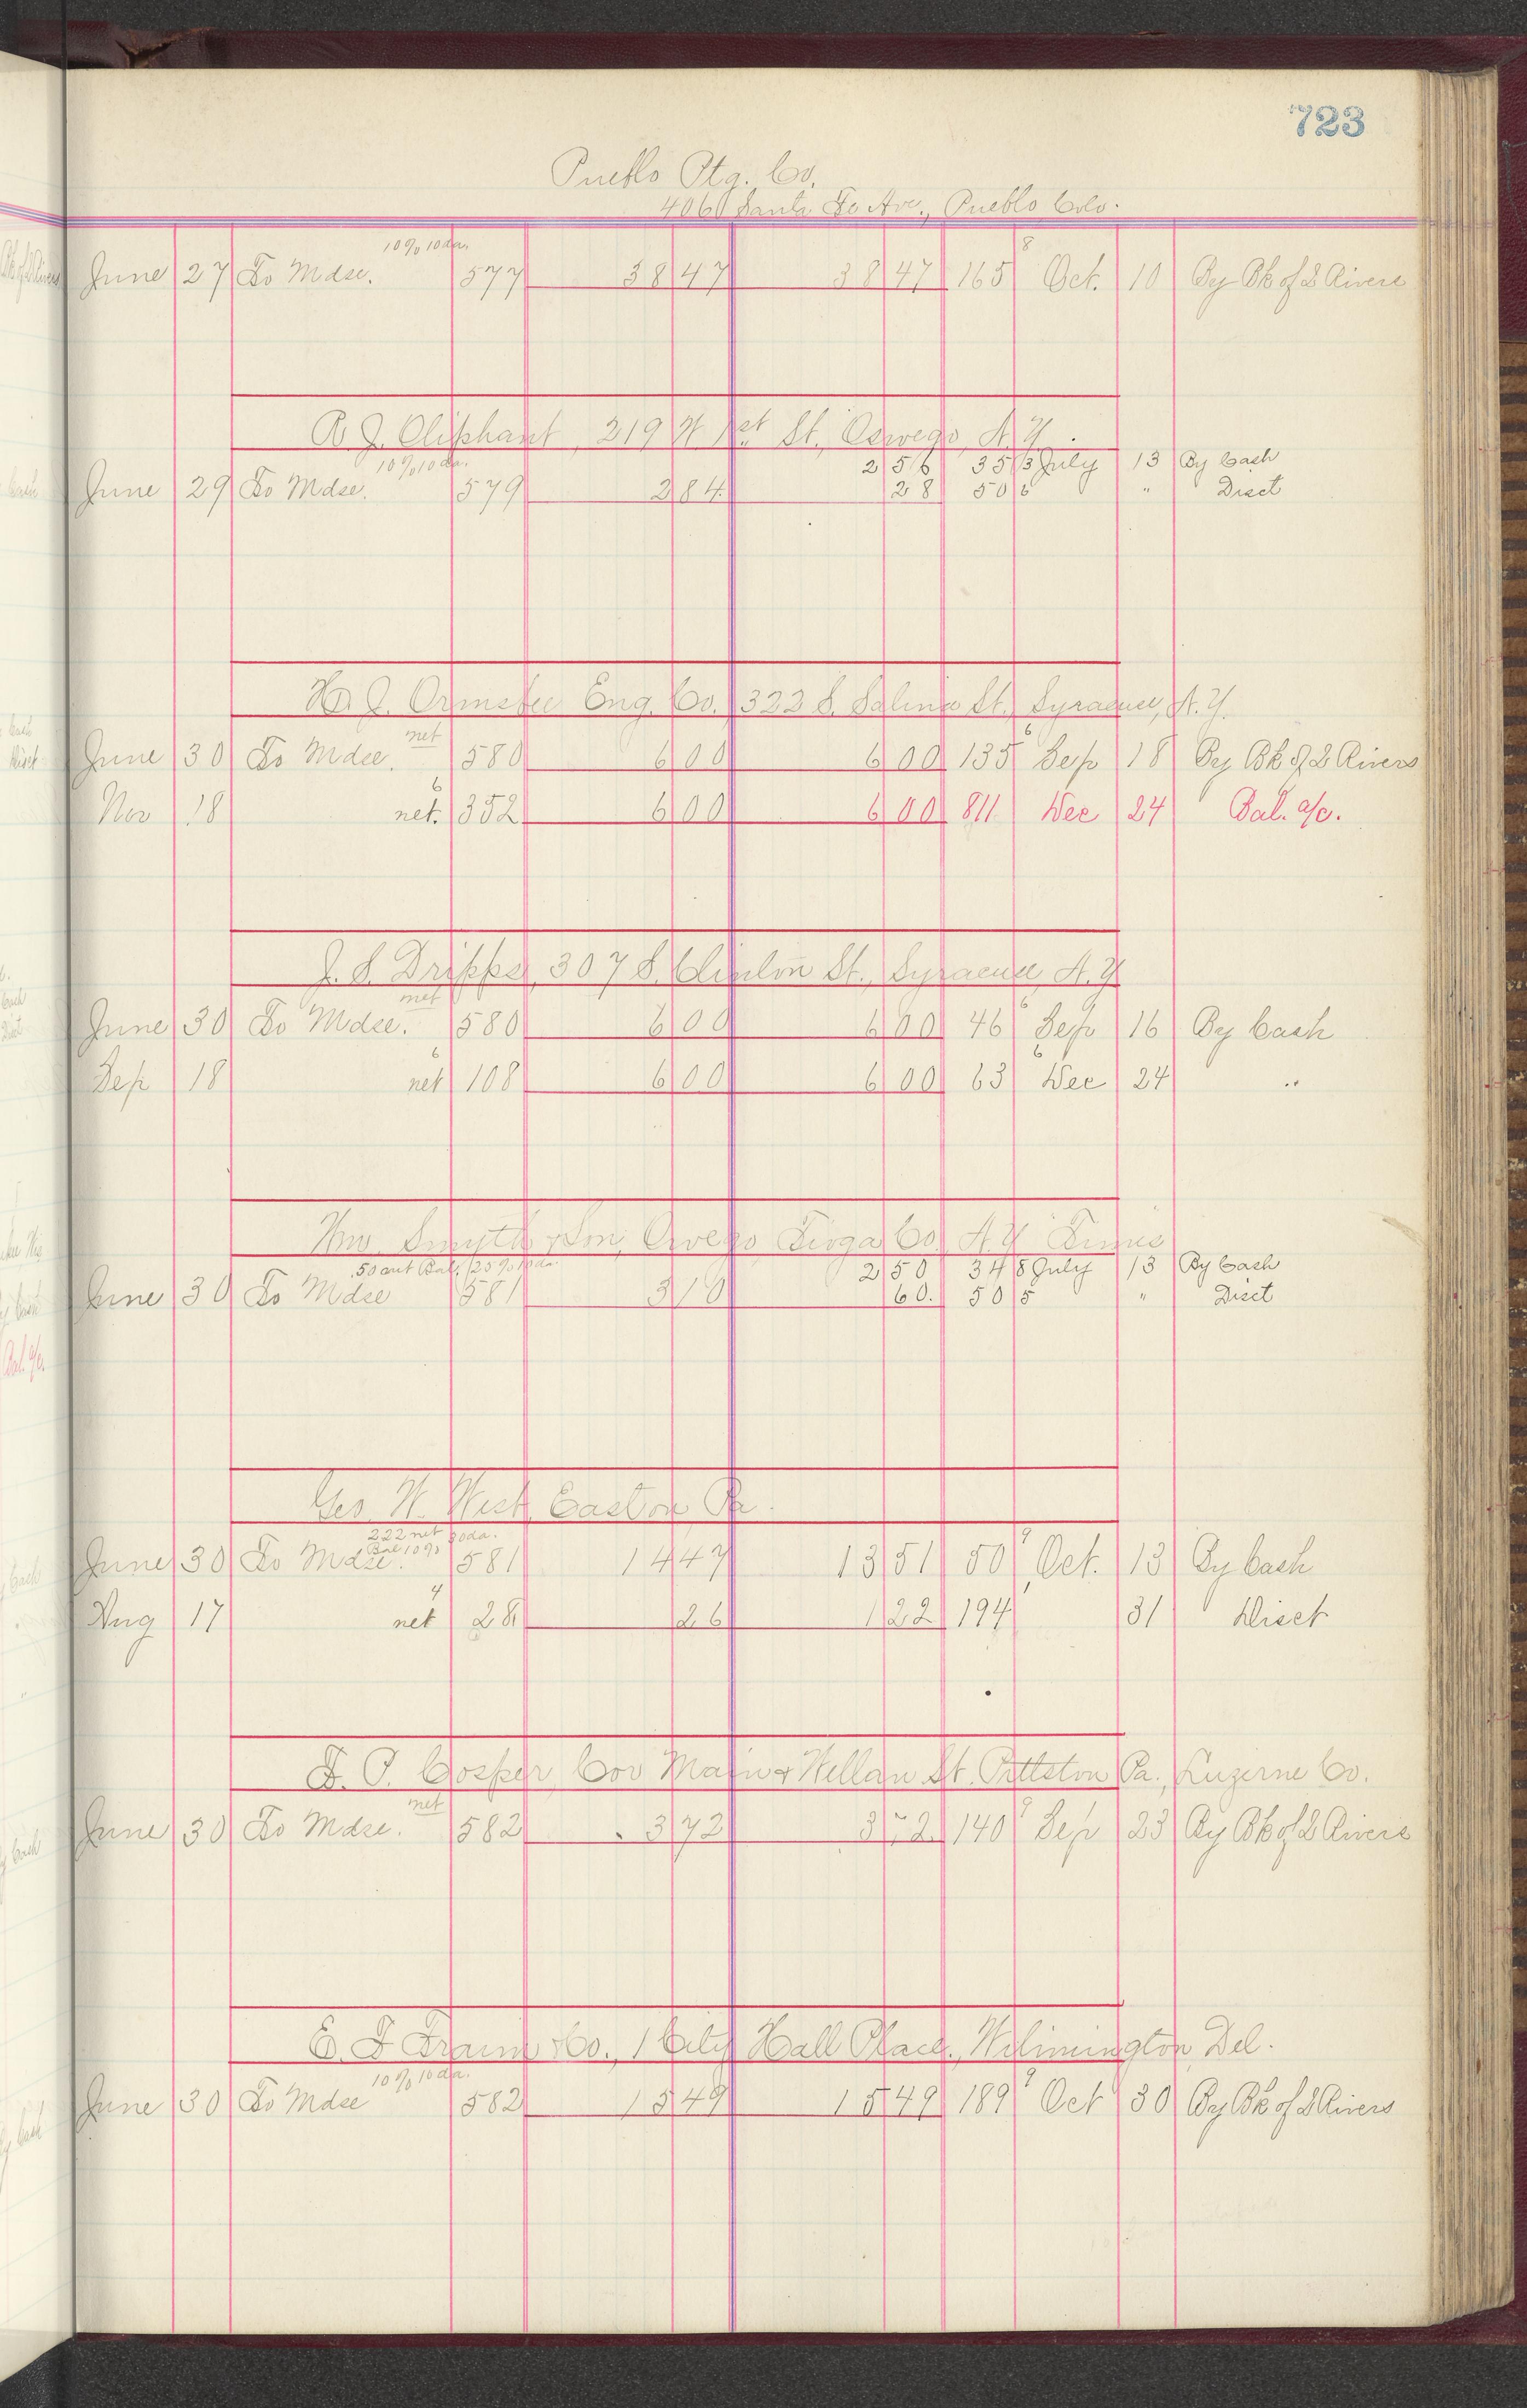 723
Pueblo Ptg. Co.
406 Santa Fe Ave., Pueblo Colo.
10% 10 da. 8
June 27 To Mdse. 577 38 47 38 47 165 Oct. 10 By Bk of 2 Rivers
R. J. Oliphant, 219 W 1st St., Oswego, N.Y.
10% 10 da. 2 56 35 3 July 13 By Cash
June 29 To Mdse. 579 2 84 28 50 5 " Disct
H. J. Ormsbee Eng. Co. 322 S. Salina St. Syracuse, N.Y.
net 6
June 30 To Mdse. 580 6 00 6 00 135 Sep 18 By Bk of 2 Rivers
6
Nov 18 net. 352 6 00 6 00 811 Dec 24 Bal. a/c.
J. S. Dripps, 307 S. Clinton St., Syracuse, N.Y
net 6
June 30 To Mdse. 580 6 00 6 00 46 Sep 16 By Cash
6 6
Sep 18 net 108 6 00 6 00 63 Dec 24 "
Wm. Smyth & Son, Owego Tioga Co. N.Y Times
50 net Bal. 25% 10 da. 2 50 34 8 July 13 By Cash
June 30 To Mdse 581 3 10 60. 50 5 " Disct
Geo. W. West, Easton Pa.
222 net 30 da. 9
Bal 10%
June 30 To Mdse. 581 14 47 13 51 50 Oct. 13 By Cash
4
Aug 17 net 28 26 1 22 194 31 Disct
F. P. Cosper Cor Main & Wellan St. Pittston Pa., Luzerne Co.
net 9
June 30 To Mdse. 582 3 72 3 72 140 Sep 23 By Bk of 2 Rivers
E. F. Fraim & Co., 1 City Hall Place, Wilmington, Del.
10% 10 da. 9
June 30 To Mdse 582 15 49 15 49 189 Oct 30 By Bk of 2 Rivers